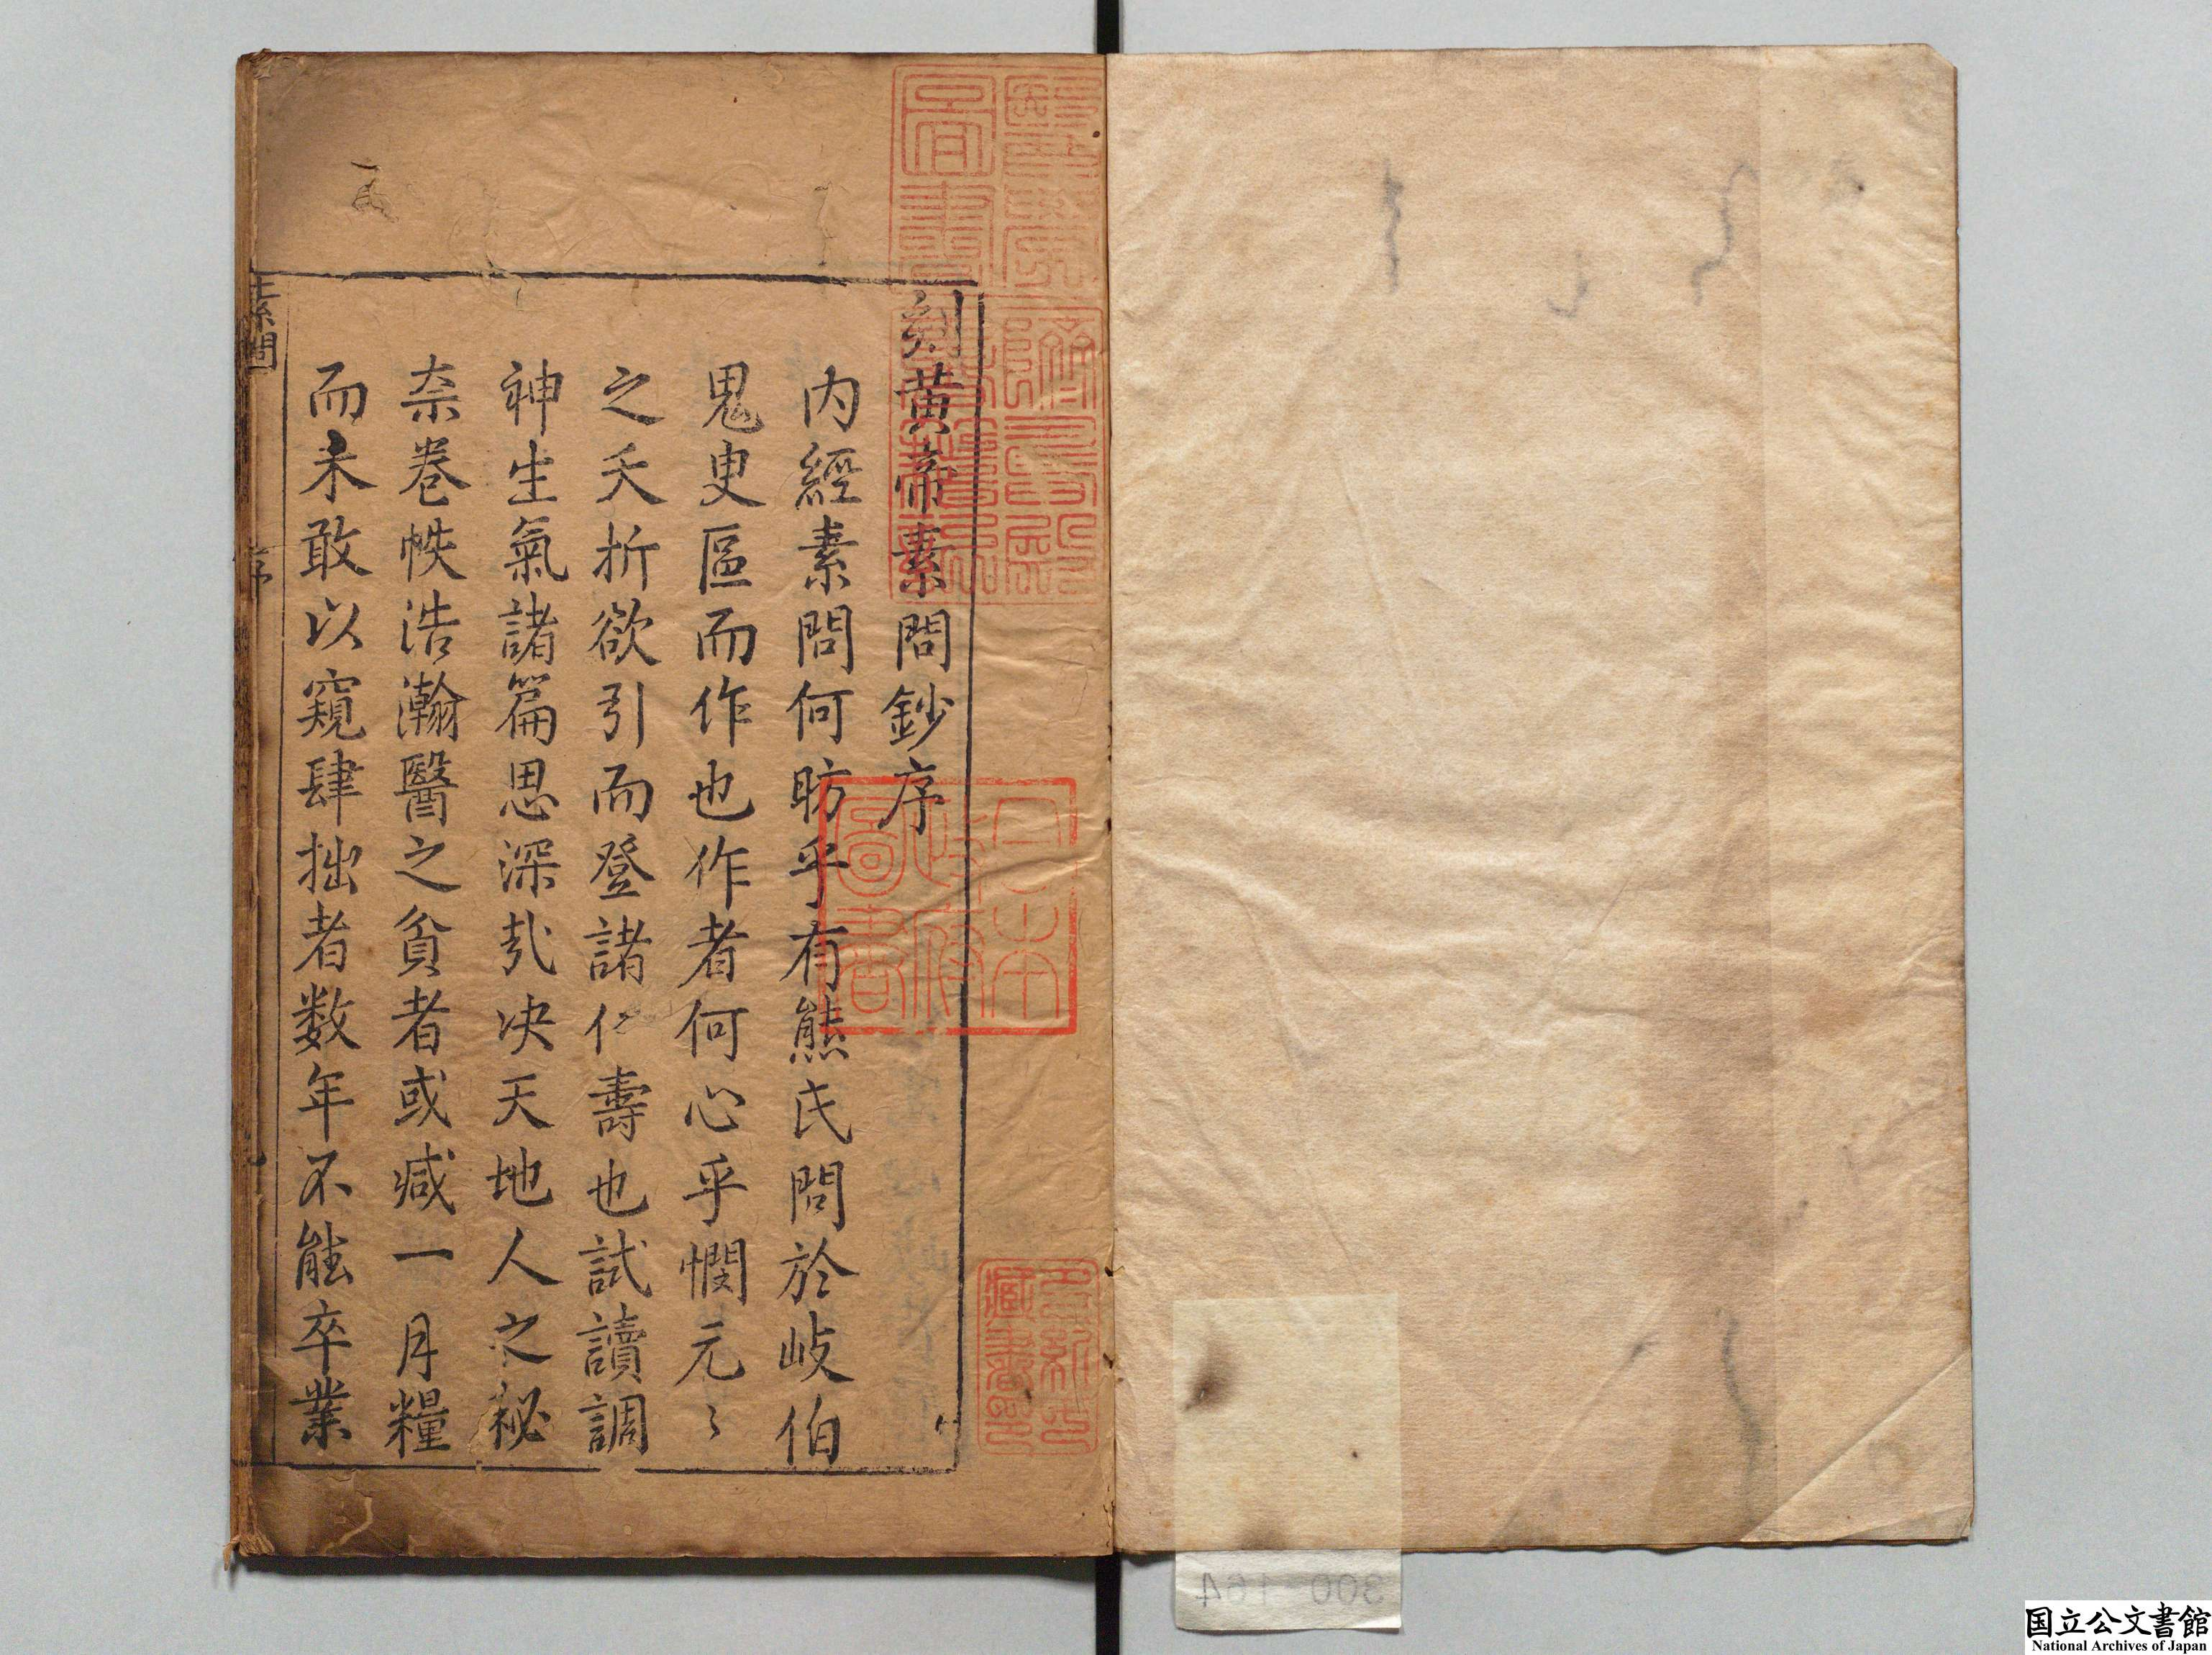 刻黄帝素問鈔序
内經素問何昉乎有熊氏問於岐伯
鬼臾區而作也作者何心乎憫元〻
之夭折欲引而登諸仁壽也試讀調
神生氣諸篇思深㢤决天地人之秘
柰卷帙浩瀚醫之貧者或减一月糧
而未敢以窺肆拙者数年不能卒業
素問
序
日本政府圖書
300-164
国立公文書館
National Archives of Japan